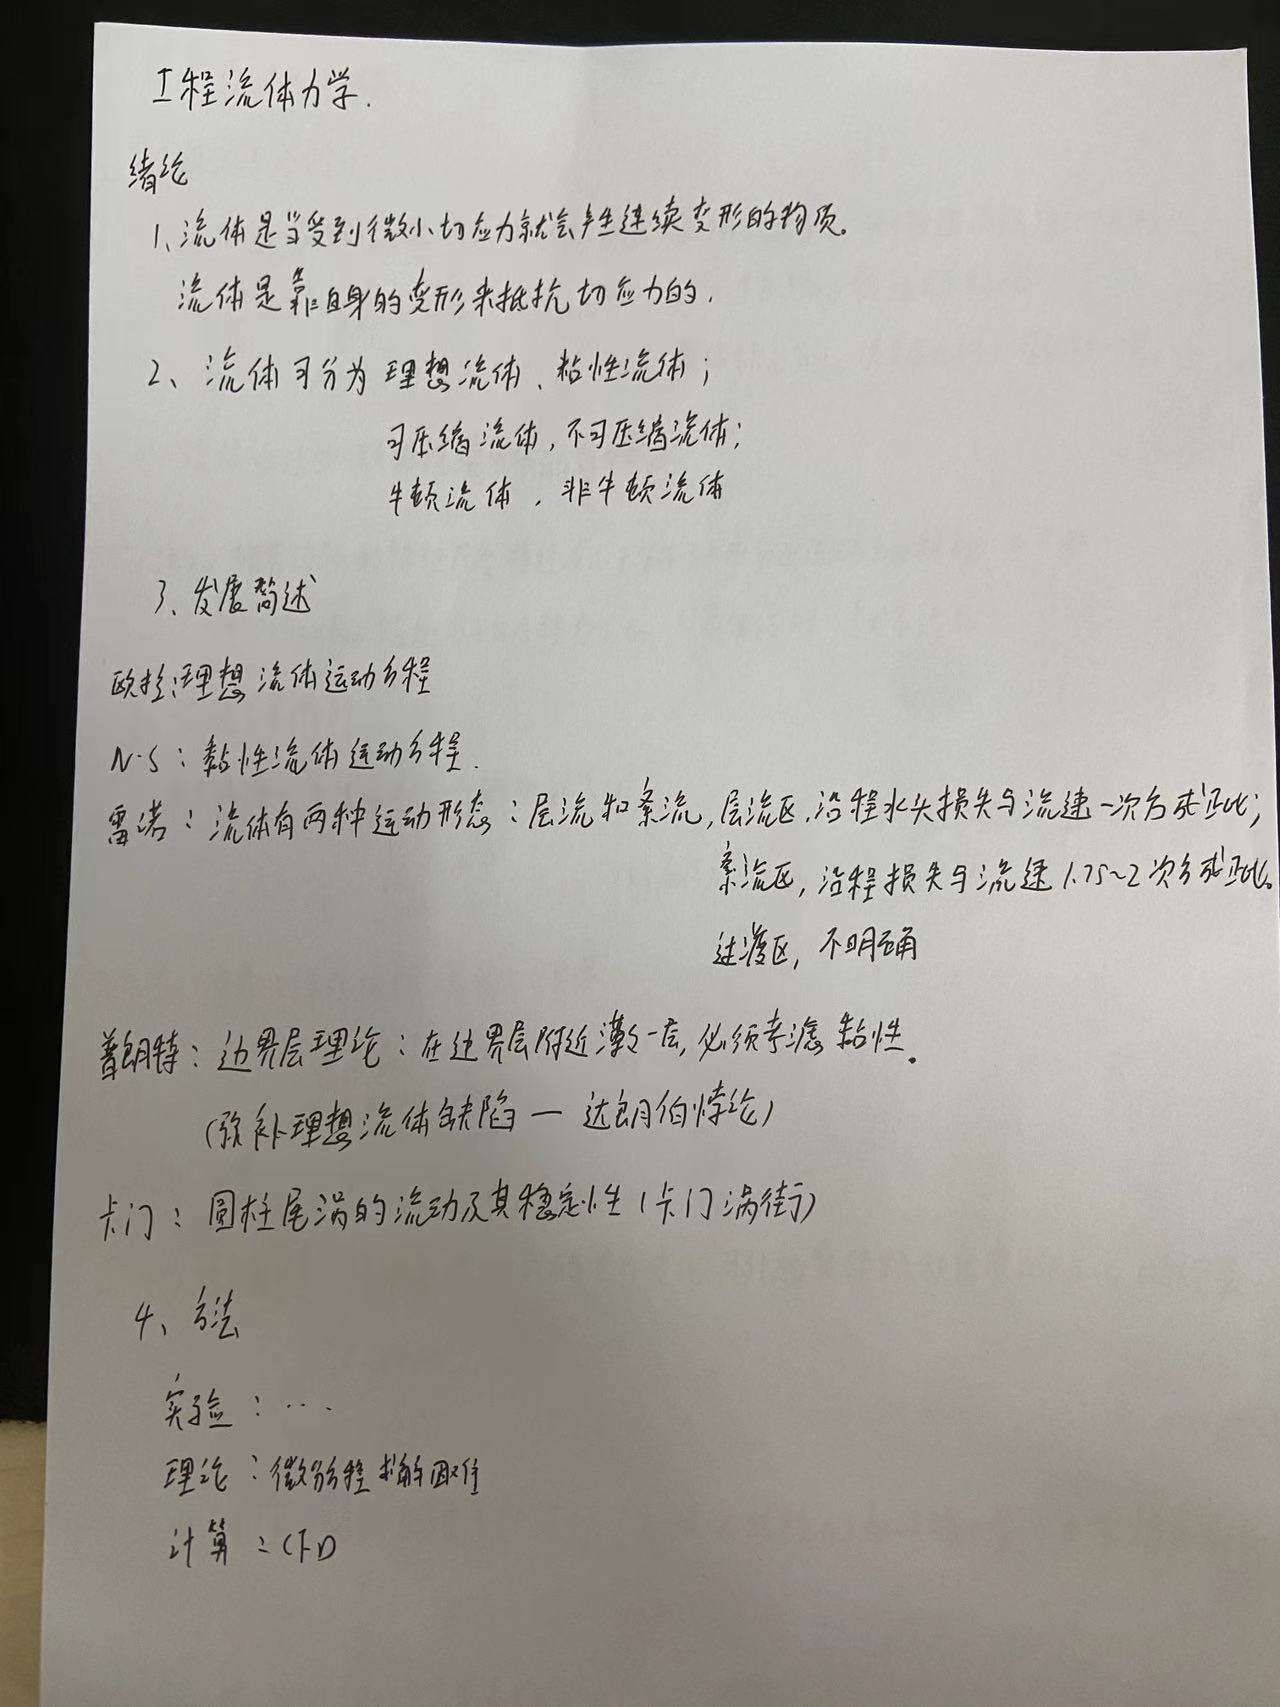 工程流体力学.
绪论
1、流体是当受到微小切应力就会产生连续变形的物质。
流体是靠自身的变形来抵抗切应力的.
2、流体可分为 理想流体、粘性流体;
可压缩流体,不可压缩流体;
牛顿流体,非牛顿流体
3、发展简述
欧拉:理想流体运动方程
N-S:黏性流体运动方程.
雷诺:流体有两种运动形态:层流和紊流,层流区,沿程水头损失与流速一次方成正比;
紊流区,沿程损失与流速1.75~2次方成正比。
过渡区,不明确
普朗特:边界层理论:在边界层附近薄薄一层,必须考虑黏性。
(弥补理想流体缺陷—达朗伯悖论)
卡门:圆柱尾涡的流动及其稳定性(卡门涡街)
4、方法
实验:...
理论:微分方程求解困难
计算:CFD